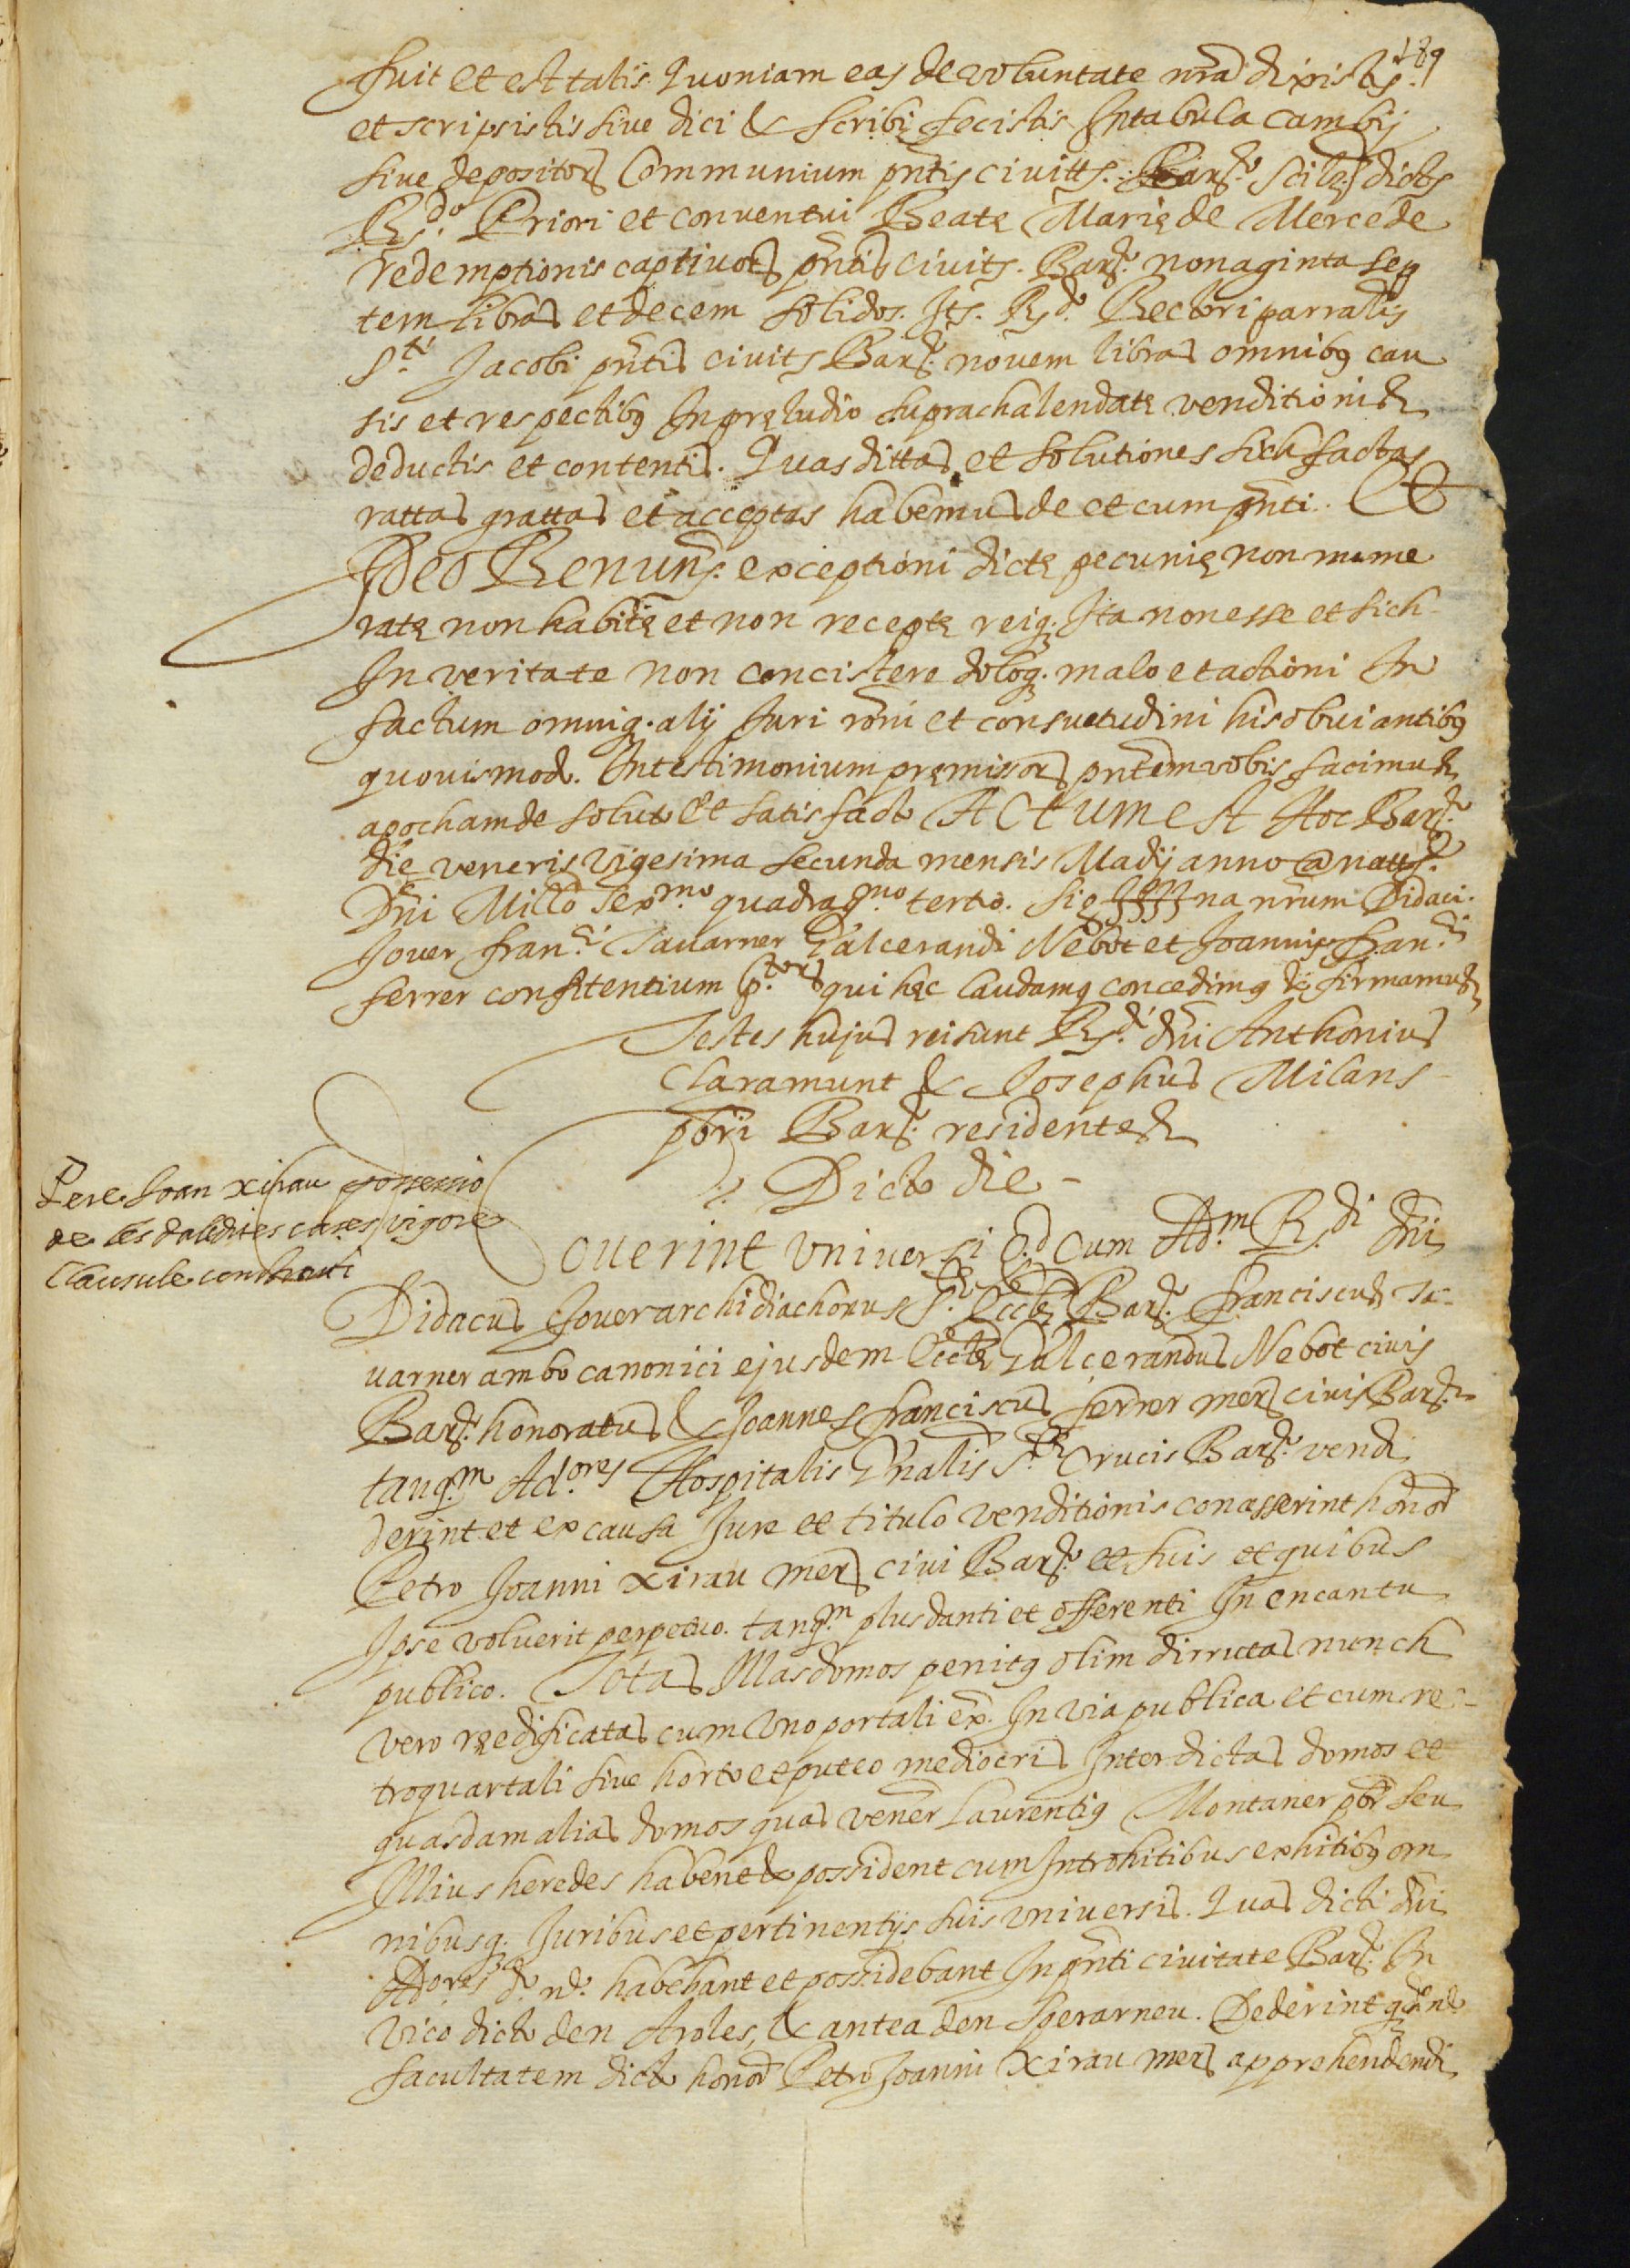 189
fuit et est talis Quoniam eas de voluntate nra dixistis
et scripsistis sive dici & scribi fecistis In tabula cambij
sive depositors Communium pntis civitts. Barne. Scilet dicts
Rdo. Priori et conventui Beate Marie de Mercede
redemptionis captivors pntis civits. Barne. nonaginta sep
tem libras et decem solidos. Its. Rdo. Rectori parralis
Sti Jacobi pntis civits Barne. novem libras omnibus cau
sis et respectibus In preludio suprachalendate venditionis
deductis et contentis. Quas dittas et solutiones sich factas
rattas grattas et acceptas habemus de et cum pnti. Et
Ideo Renuns. exceptioni dicte pecunie non nume
rate non habite et non recepte reiq. Ita non esse et sich
In veritate non concistere doloq. malo et actioni In
factum omniq. alij Juri roni et consuetudini his obviantibus
quovismodo. In testimonium premissors pntem vobis facimus
apocham de soluto et satisfacto ACtum est Hoc Barne
die veneris vigesima secunda mensis Madij anno @ natte.
Dni Millo sexmo. quadragmo tertio. Sig na nrum Didaci
Jover Franci. Tavarner Galcerandi Nebot et Joannis Franci
ferrer confitentium ptors qui hec laudamus concedimus & firmamus
Testes hujus rei sunt Rdi. dni Anthonius
Claramunt & Josephus Milans
pbri Barne. residentes
Dicto die
Pere Joan xirau possessio
de les daldites cases vigore
Clausule constituti
overint vniversi Qd cum Adm. Rdi. dni
Didacus Jover archidiachonus Ste. Eccle Barne. Franciscus Ta-
varner ambo canonici ejusdem Eccle Galcerandus Nebot civis
Barne. honoratus & Joannes franciscus ferrer mers civis Barne.
tanqm. Adores. Hospitalis Gnalis Ste Crucis Barne. vendi
derint et ex causa Jure et titulo venditionis conasserint honor
Petro Joanni xirau mers civi Barne. et suis et quibus
Ipse voluerit perpetuo. tanqm. plus danti et offerenti In encantu
publico. Totas Illas domos penitus olim dirrutas nunch
vero reedificatas cum Vno portali ex. In via publica et cum re-
troquartali sive horto et puteo mediocris Inter dictas domos et
quasdam alias domos quas vener Laurentius Montaner pbr seu
Illius heredes habent & possident cum Introhitibus exhitibus om
nibusq. Juribus et pertinentijs suis vniversis. Quas dicti dni
Adores do. no. habebant et possidebant In pnti civitate Barne. In
vico dicto den Aroles, & antea den Sperarneu. Dederint q
facultatem dicto honor Petro Joanni Xirau mers apprehendendi